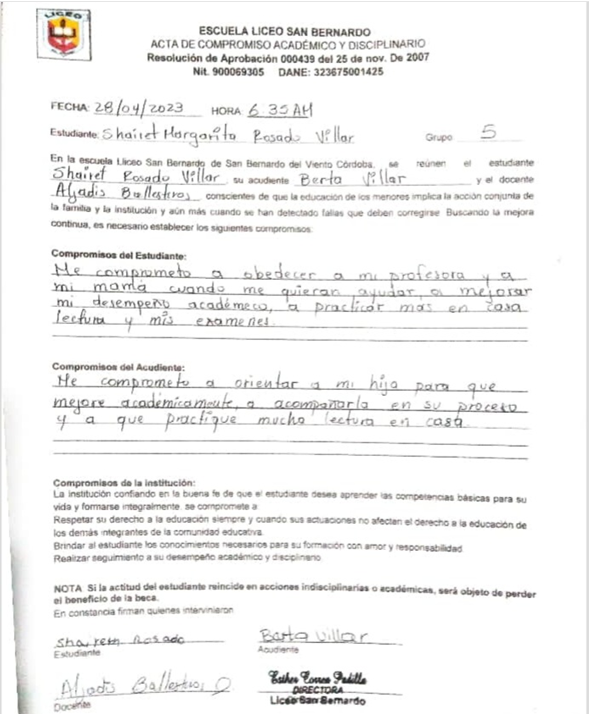 LICEO
ESCUELA LICEO SAN BERNARDO
ACTA DE COMPROMISO ACADÉMICO Y DISCIPLINARIO
Resolución de Aprobación 000439 del 25 de nov. De 2007
Nit. 900069305 DANE: 323675001425
FECHA: 28/04/2023 HORA 6:35 AM
Estudiante: Shairet Margarita Rosado Villar Grupo 5
En la escuela Liceo San Bernardo de San Bernardo del Viento Córdoba, se reúnen el estudiante
Shairet Rosado Villar su acudiente Berta Villar y el docente
Aljadis Ballestros, conscientes de que la educación de los menores implica la acción conjunta de
la familia y la institución y aún más cuando se han detectado fallas que deben corregirse. Buscando la mejora
continua, es necesario establecer los siguientes compromisos:
Compromisos del Estudiante:
Me comprometo a obedecer a mi profesora y a
mi mamá cuando me quieran ayudar, a mejorar
mi desempeño académeco, a practicar mas en casa
lectura y mis examenes
Compromisos del Acudiente:
Me comprometo a orientar a mi hija para que
mejore académicamente, a acompañarla en su proceso
y a que practique mucha lectura en casa
Compromisos de la institución:
La institución confiando en la buena fe de que el estudiante desea aprender las competencias básicas para su
vida y formarse integralmente, se compromete a
Respetar su derecho a la educación siempre y cuando sus actuaciones no afectan el derecho a la educación de
los demás integrantes de la comunidad educativa.
Brindar al estudiante los conocimientos necesarios para su formación con amor y responsabilidad
Realizar seguimiento a su desempeño académico y disciplinario
NOTA. Si la actitud del estudiante reincide en acciones indisciplinarias o académicas, será objeto de perder
el beneficio de la beca.
En constancia firman quienes intervinieron
Shairem Rosado Berta Villar
Estudiante Acudiente
Aljadis Ballestros O. Esther Torres Padilla
DIRECTORA
Docente Liceo San Bernardo